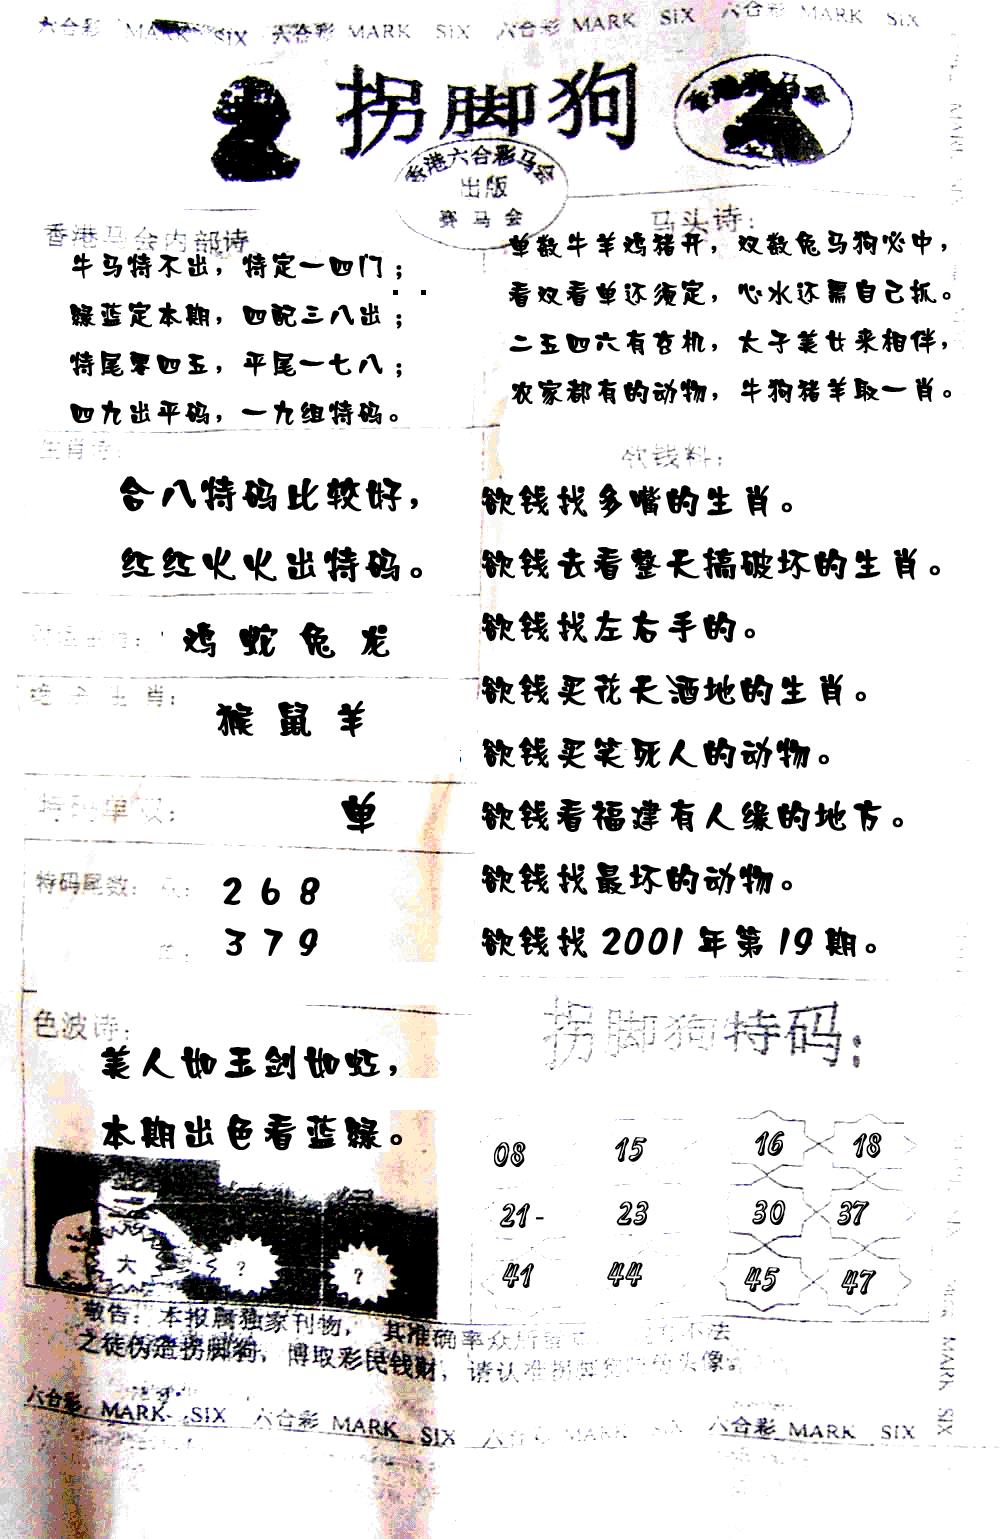 六合彩 MARK SIX 六合彩 MARK SIX 六合彩 MARK SIX 六合彩 MARK SIX
拐脚狗
香港六合彩马会
出版
赛马会
香港马会内部诗
牛马特不出，特定一四门；
绿蓝定本期，四配三八出；
特尾零四五，平尾一七八；
四九出平码，一九组特码。
马头诗：
单数牛羊鸡猪开，双数兔马狗必中，
看双看单还须定，心水还需自己抓。
二五四六有玄机，太子美女来相伴，
农家都有的动物，牛狗猪羊取一肖。
生肖诗：
合八特码比较好，
红红火火出特码。
鸡 蛇 兔 龙
绝杀生肖：
猴 鼠 羊
特码单双：
单
特码尾数：
2 6 8
3 7 9
色波诗：
美人如玉剑如虹，
本期出色看蓝绿。
大 ? ?
欲钱料：
欲钱找多嘴的生肖。
欲钱去看整天搞破坏的生肖。
欲钱找左右手的。
欲钱买花天酒地的生肖。
欲钱买笑死人的动物。
欲钱看福建有人缘的地方。
欲钱找最坏的动物。
欲钱找 2001 年第 19 期。
拐脚狗特码：
08 15 16 18
21- 23 30 37
41 44 45 47
敬告：本报属独家刊物，其准确率众所 不法
之徒伪造拐脚狗，博取彩民钱财，请认准拐脚狗 头像。
六合彩 MARK SIX 六合彩 MARK SIX 六合彩 MARK SIX 六合彩 MARK SIX
MARK SIX